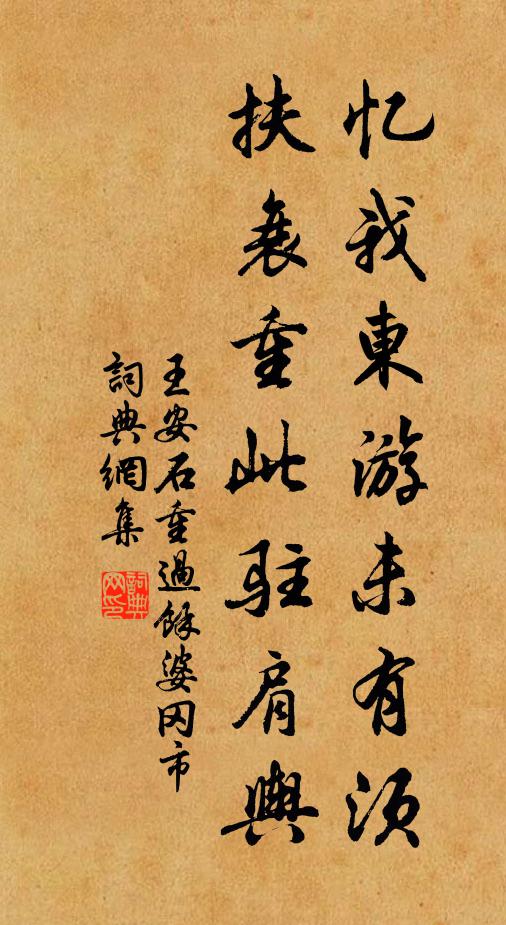 忆我東游未有须
扶衰重此駐肩輿
王安石重過餘婆冈市
詞典網集
詞典网印